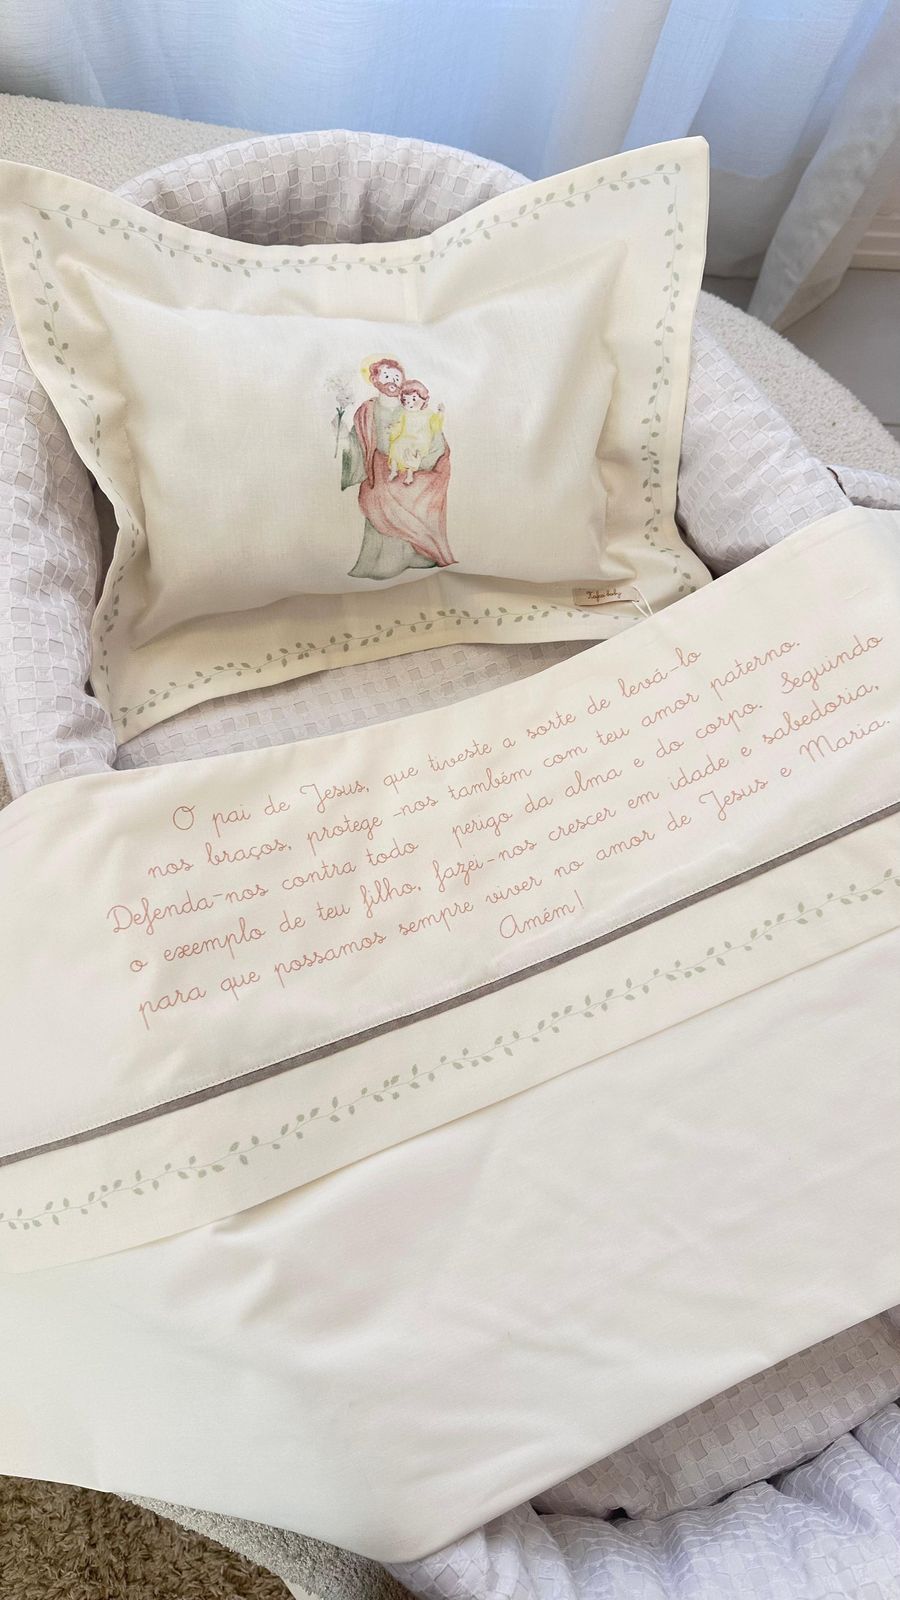 O pai de Jesus, que tiveste a sorte de levá-lo
nos braços, protege-nos também com teu amor paterno.
Defenda-nos contra todo perigo da alma e do corpo. Seguindo
o exemplo de teu filho, fazei-nos crescer em idade e sabedoria,
para que possamos sempre viver no amor de Jesus e Maria.
Amém!